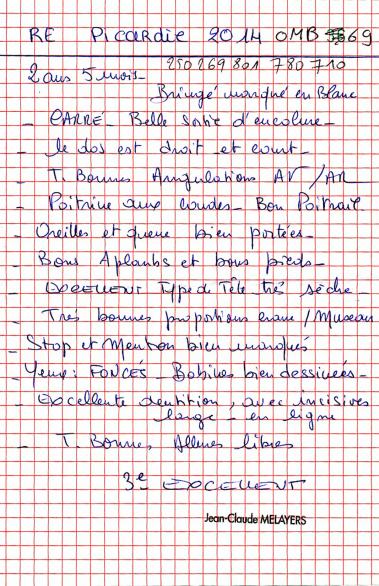 RE Picardie 2014 OMB 69
250 269 801 780 710
2 ans 5 mois -
Bringé marqué en Blanc
- CARRÉ - Belle sortie d'encolure -
- le dos est droit et court -
- T. Bonnes Angulations AV / AR
- Poitrine aux coudes - Bon Poitrail
- Oreilles et queue bien portées -
Bons Aplombs et bons pieds -
- EXCELLENT Type de Tête très sèche -
- Très bonnes proportions crane / Museau
- Stop et Menton bien marqués
- Yeux : FONCÉS - Babines bien dessinées -
- Excellente dentition, avec incisives
large - en ligne
- T. Bonne, Allures libres
3e EXCELLENT
Jean-Claude MELAYERS